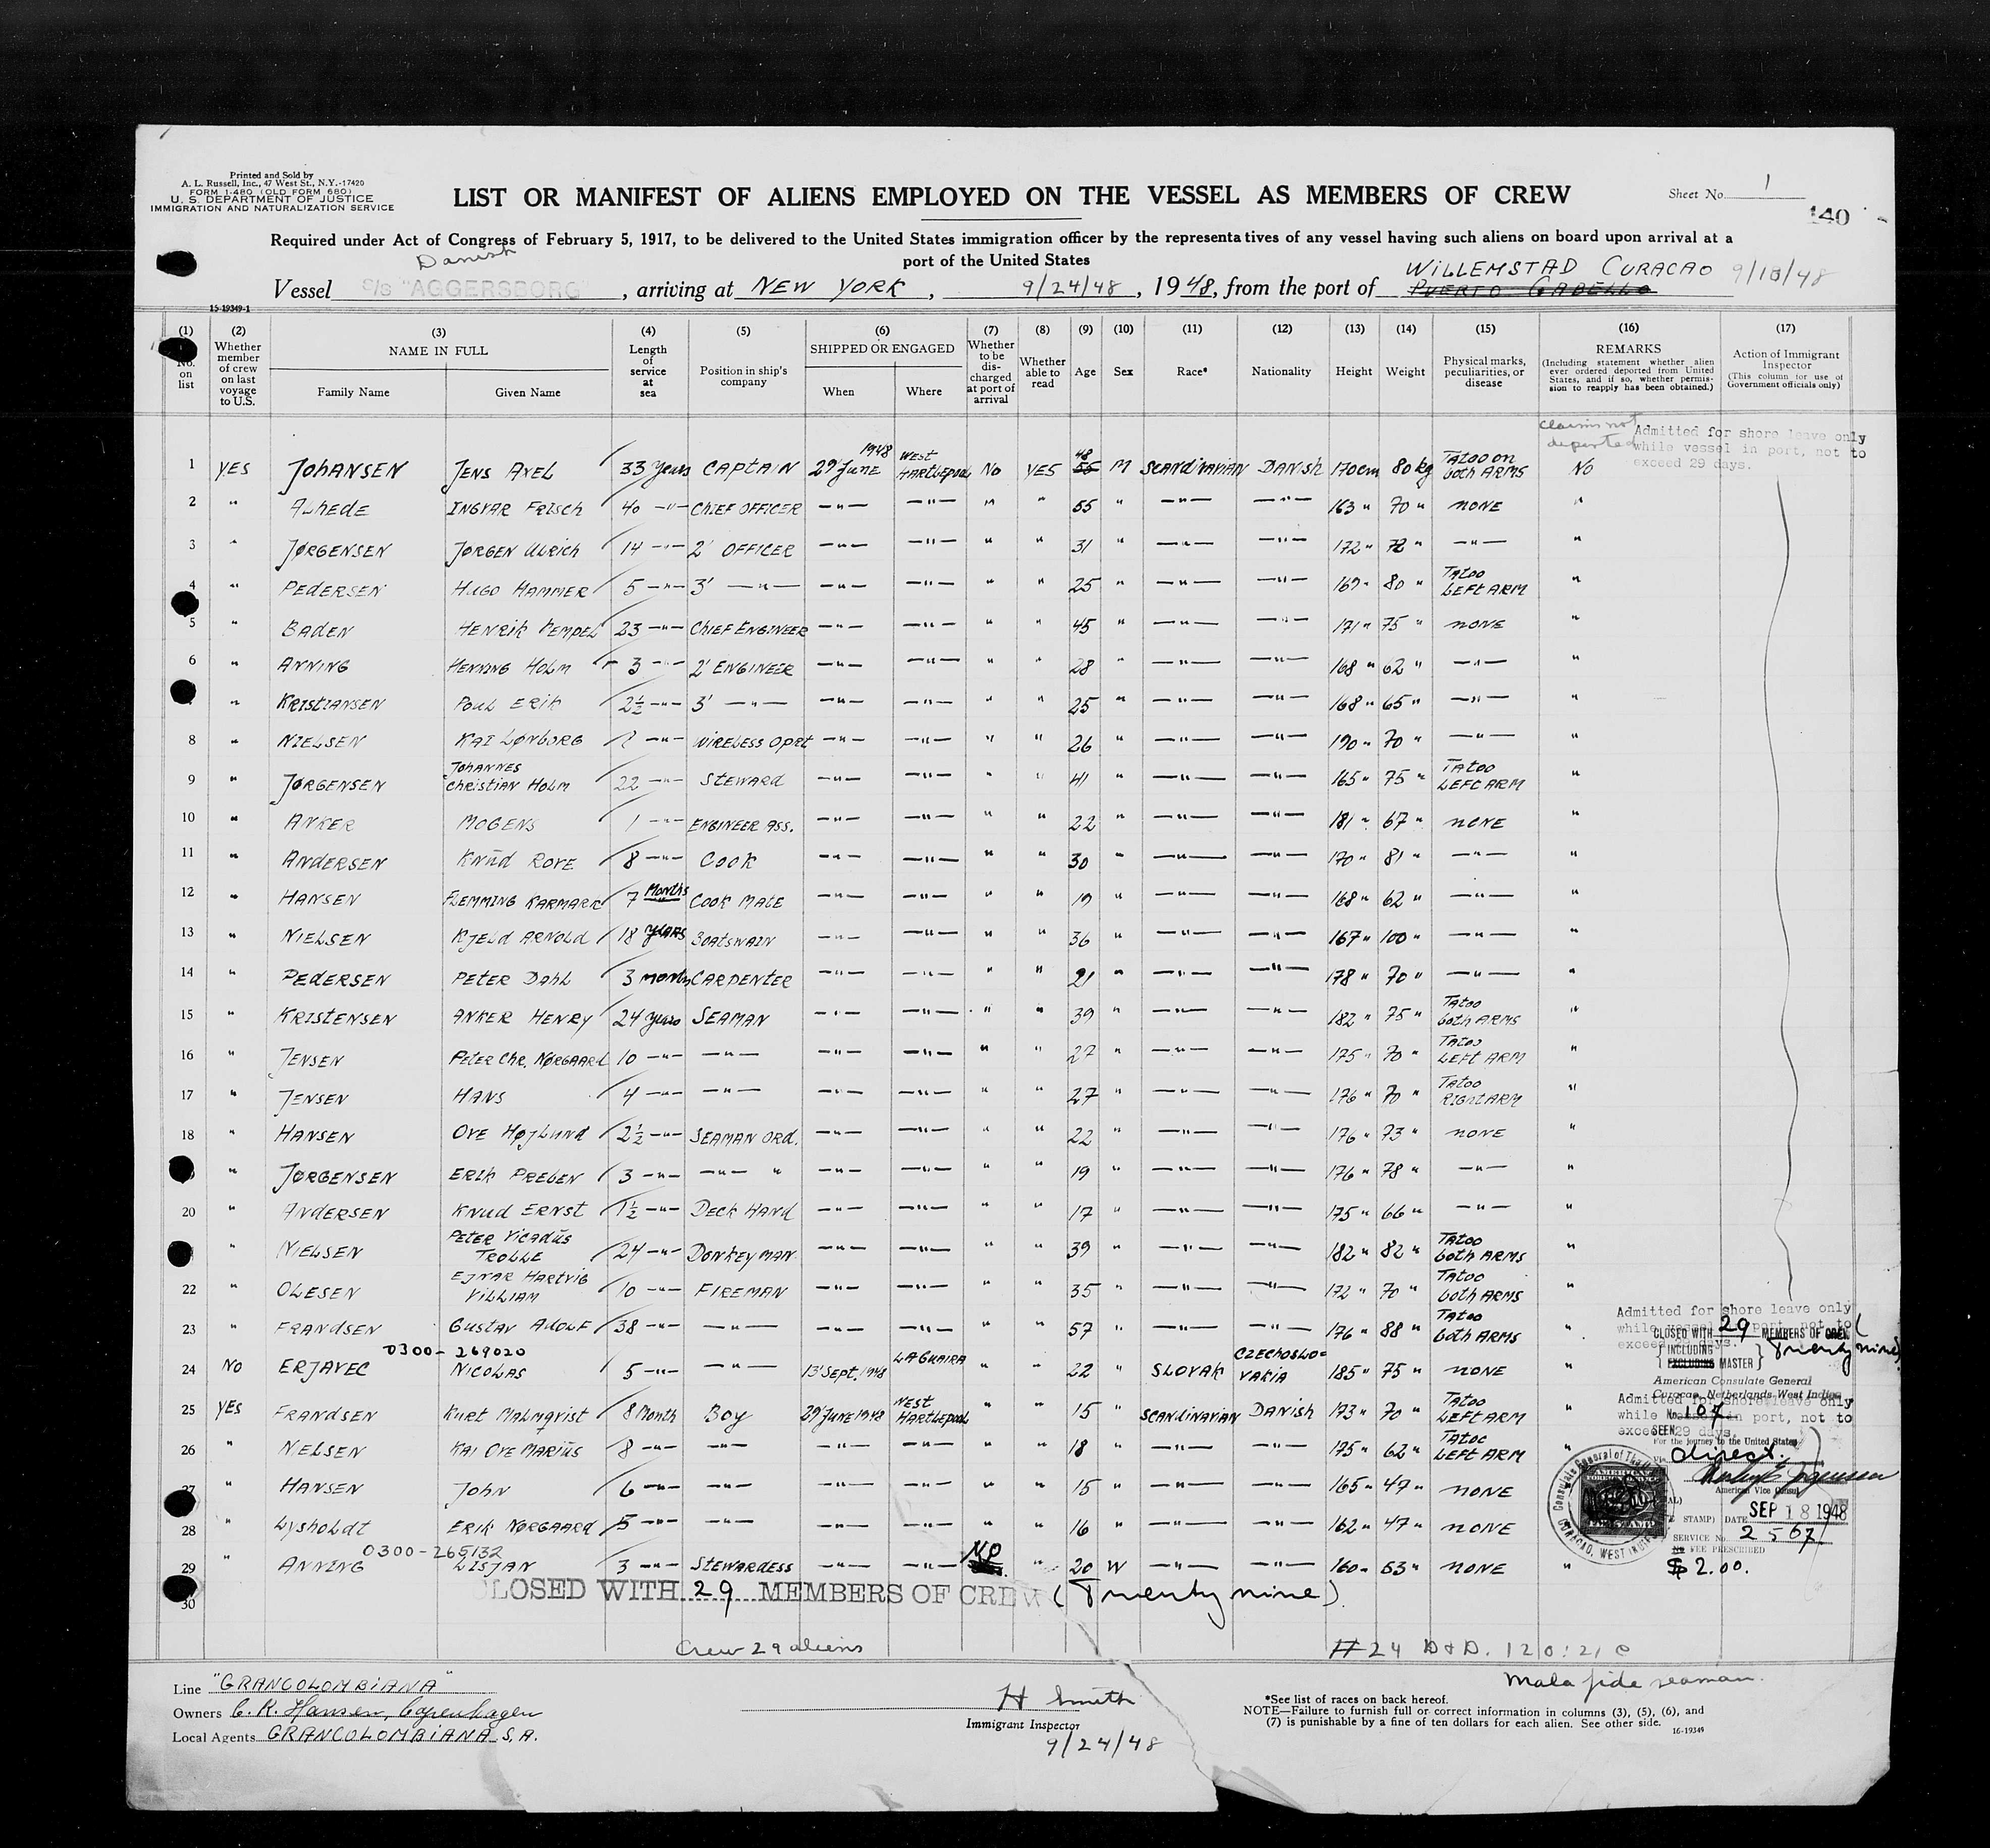 Printed and Sold by
A. L. Russell, Inc., 47 West St., N.Y.-17420
FORM I-480 (OLD FORM 680)
U. S. DEPARTMENT OF JUSTICE
IMMIGRATION AND NATURALIZATION SERVICE
LIST OR MANIFEST OF ALIENS EMPLOYED ON THE VESSEL AS MEMBERS OF CREW
Sheet No. 1
140
Required under Act of Congress of February 5, 1917, to be delivered to the United States immigration officer by the representatives of any vessel having such aliens on board upon arrival at a
port of the United States
Danish
Vessel S/S "AGGERSBORG", arriving at NEW YORK, 9/24/48, 1948, from the port of PUERTO CABELLO WILLEMSTAD CURACAO 9/18/48
15-19349-1
(1) No. on list
(2) Whether member of crew on last voyage to U.S.
(3) NAME IN FULL Family Name Given Name
(4) Length of service at sea
(5) Position in ship's company
(6) SHIPPED OR ENGAGED When Where
(7) Whether to be discharged at port of arrival
(8) Whether able to read
(9) Age
(10) Sex
(11) Race*
(12) Nationality
(13) Height
(14) Weight
(15) Physical marks, peculiarities, or disease
(16) REMARKS (Including statement whether alien ever ordered deported from United States, and if so, whether permission to reapply has been obtained.)
(17) Action of Immigrant Inspector (This column for use of Government officials only)
claims not deported
Admitted for shore leave only
while vessel in port, not to
exceed 29 days.
1 YES JOHANSEN JENS AXEL 33 years CAPTAIN 1948 29' June WEST HARTLEPOOL No YES 48 M SCANDINAVIAN DANISH 170cm 80kg TATOO ON both ARMS No
2 " ALHEDE INGVAR FRISCH 40 —"— CHIEF OFFICER —"— —"— " " 55 " —"— —"— 163 " 70 " NONE "
3 " JØRGENSEN JØRGEN ULRICH 14 —"— 2' OFFICER —"— —"— " " 31 " —"— —"— 172 " 72 " —"— "
4 " PEDERSEN HUGO HAMMER 5 —"— 3' —"— —"— —"— " " 25 " —"— —"— 169 " 80 " TATOO LEFT ARM "
5 " BADEN HENRIK KEMPEL 23 —"— CHIEF ENGINEER —"— —"— " " 45 " —"— —"— 171 " 75 " NONE "
6 " ANNING HENNING HOLM 3 —"— 2' ENGINEER —"— —"— " " 28 " —"— —"— 168 " 62 " —"— "
" KRISTIANSEN POUL ERIK 2½ —"— 3' —"— —"— —"— " " 25 " —"— —"— 168 " 65 " —"— "
8 " NIELSEN KAI LØNBORG 2 —"— WIRELESS OPRT —"— —"— " " 26 " —"— —"— 190 " 70 " —"— "
9 " JØRGENSEN JOHANNES CHRISTIAN HOLM 22 —"— STEWARD —"— —"— " " 41 " —"— —"— 165 " 75 " TATOO LEFT ARM "
10 " ANKER MOGENS 1 —"— ENGINEER ASS. —"— —"— " " 22 " —"— —"— 181 " 67 " NONE "
11 " ANDERSEN KNUD ROVE 8 —"— COOK —"— —"— " " 30 " —"— —"— 170 " 81 " —"— "
12 " HANSEN FLEMMING KARMARK 7 Months COOK MATE —"— —"— " " 19 " —"— —"— 168 " 62 " —"— "
13 " NIELSEN KJELD ARNOLD 18 years BOATSWAIN —"— —"— " " 36 " —"— —"— 167 " 100 " —"— "
14 " PEDERSEN PETER DAHL 3 months CARPENTER —"— —"— " " 21 " —"— —"— 178 " 70 " —"— "
15 " KRISTENSEN ANKER HENRY 24 years SEAMAN —"— —"— " " 39 " —"— —"— 182 " 75 " TATOO both ARMS "
16 " JENSEN PETER CHR. NØRGAARD 10 —"— —"— —"— —"— " " 27 " —"— —"— 175 " 70 " TATOO LEFT ARM "
17 " JENSEN HANS 4 —"— —"— —"— —"— " " 27 " —"— —"— 176 " 70 " TATOO RIGHT ARM "
18 " HANSEN OVE HØJLUND 2½ —"— SEAMAN ORD. —"— —"— " " 22 " —"— —"— 176 " 73 " NONE "
" JØRGENSEN ERIK PREBEN 3 —"— —"— " —"— —"— " " 19 " —"— —"— 176 " 78 " —"— "
20 " ANDERSEN KNUD ERNST 1½ —"— DECK HAND —"— —"— " " 17 " —"— —"— 175 " 66 " —"— "
" NIELSEN PETER VICADUS TROLLE 24 —"— DONKEYMAN —"— —"— " " 39 " —"— —"— 182 " 82 " TATOO both ARMS "
22 " OLESEN EJNAR HARTVIG VILLIAM 10 —"— FIREMAN —"— —"— " " 35 " —"— —"— 172 " 70 " TATOO both ARMS "
23 " FRANDSEN GUSTAV ADOLF 38 —"— —"— —"— —"— " " 57 " —"— —"— 176 " 88 " TATOO both ARMS "
0300-269020
24 NO ERJAVEC NICOLAS 5 —"— —"— 13' Sept. 1948 LA GUAIRA " " 22 " SLOVAK CZECHOSLOVAKIA 185 " 75 " NONE "
25 YES FRANDSEN KURT MALMQVIST 8 Month BOY 29' JUNE 1948 WEST HARTLEPOOL " " 15 " SCANDINAVIAN DANISH 173 " 70 " TATOO LEFT ARM "
26 " NELSEN KAI OVE MARIUS 8 —"— —"— —"— —"— " " 18 " —"— —"— 175 " 62 " TATOO LEFT ARM "
27 " HANSEN JOHN 6 —"— —"— —"— —"— " " 15 " —"— —"— 165 " 47 " NONE "
28 " LYSHOLDT ERIK NØRGAARD 5 —"— —"— —"— —"— " " 16 " —"— —"— 162 " 47 " NONE "
0300-265132
29 " ANNING LISJAN 3 —"— STEWARDESS —"— —"— NO " 20 W —"— —"— 160 " 53 " NONE "
30
Admitted for shore leave only
while vessel in port, not to
exceed 29 days.
CLOSED WITH 29 MEMBERS OF CREW (Twenty nine)
INCLUDING
EXCLUDING MASTER
American Consulate General
Curacao, Netherlands West Indies
Admitted for shore leave only
while vessel in port, not to
exceed 29 days.
No. 107
SEEN
For the journey to the United States
Via direct.
American Vice Consul
(SEAL)
STAMP) DATE SEP 18 1948
SERVICE No. 2567
No FEE PRESCRIBED
$2.00.
CLOSED WITH 29 MEMBERS OF CREW (Twenty nine)
Crew 29 aliens
# 24 D&D. 120:21 c
Mala fide seaman.
Line "GRANCOLOMBIANA"
Owners C. K. Hansen, Copenhagen
Local Agents GRANCOLOMBIANA S.A.
H Smith
Immigrant Inspector
9/24/48
*See list of races on back hereof.
NOTE—Failure to furnish full or correct information in columns (3), (5), (6), and
(7) is punishable by a fine of ten dollars for each alien. See other side.
16-19349